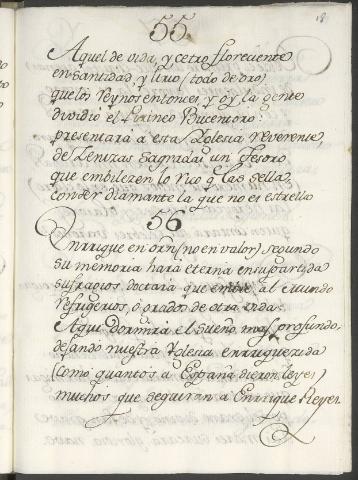 18
55
Aquel de vida, y cetro floreciente
en santidad, y lirio (todo de oro)
que los Reynos entonces, y oy la gente
dividio el Pirineo Bucentoro:
presentará á esta Yglesia reverente,
de Cenizas sagradas un Tesoro
que embilezen lo rico q las sella,
con ser diamante la que no es estrella
56
Enrrique en orn (no en valor) segundo
su memoria hará eterna en su partida
sufragios dottará que embie al mundo
refugerios, ó prados de otra vida:
Aqui Dormirá el sueño mas profundo,
dejando nuestra Yglesia enrriquezida
(como quantos a España dieron leyes)
muchos que seguiran a Enrrique Reyes.